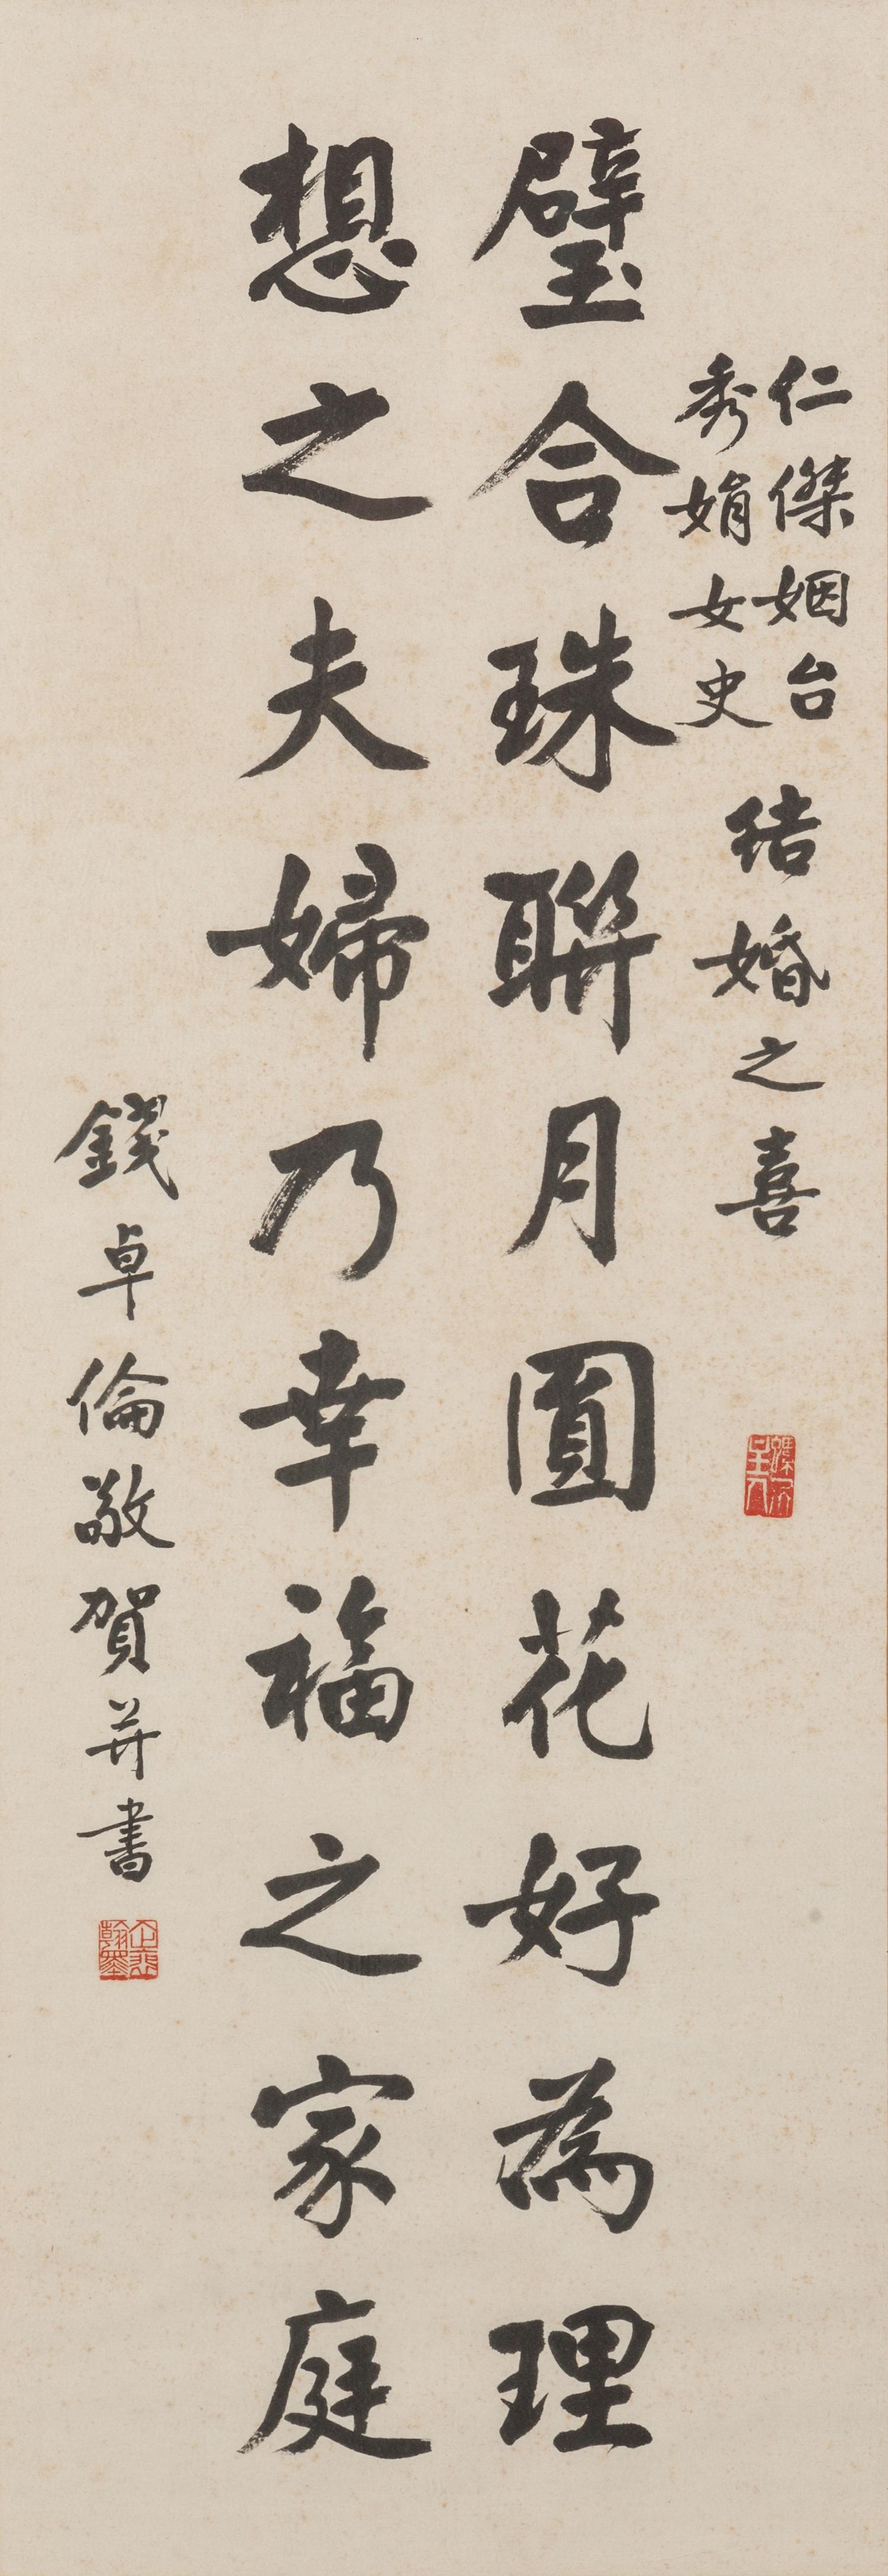 仁傑姻台
秀娟女史
結婚之喜
璧合珠聯月圓花好為理
想之夫婦乃幸福之家庭
錢卓倫敬賀并書